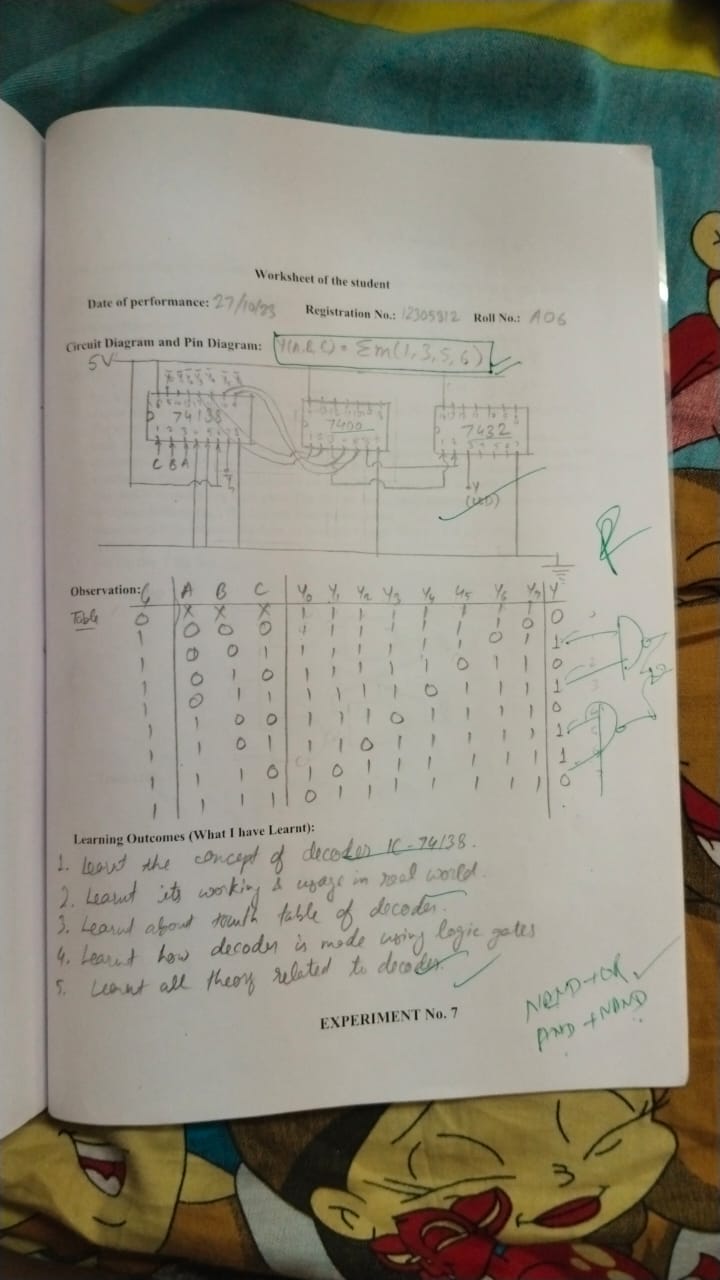 Worksheet of the student
Date of performance: 27/10/23 Registration No.: 12305812 Roll No.: A06
Circuit Diagram and Pin Diagram: Y(A,B,C) = Σm(1,3,5,6)
5V
74138 7400 7432
C B A
Y
(LED)
Observation: G A B C Y0 Y1 Y2 Y3 Y4 Y5 Y6 Y7 Y
Table 0 X X X 1 1 1 1 1 1 1 1 0
1 0 0 0 1 1 1 1 1 1 1 0 0
1 0 0 1 1 1 1 1 1 1 0 1 1
1 0 1 0 1 1 1 1 1 0 1 1 0
1 0 1 1 1 1 1 1 0 1 1 1 1
1 1 0 0 1 1 1 0 1 1 1 1 0
1 1 0 1 1 1 0 1 1 1 1 1 1
1 1 1 0 1 0 1 1 1 1 1 1 1
1 1 1 1 0 1 1 1 1 1 1 1 0
Learning Outcomes (What I have Learnt):
1. Learnt the concept of decoder IC - 74138.
2. Learnt its working & usage in real world.
3. Learnt about truth table of decoder.
4. Learnt how decoder is made using logic gates
5. Learnt all theory related to decoder.
NAND+OR
AND+NAND
EXPERIMENT No. 7